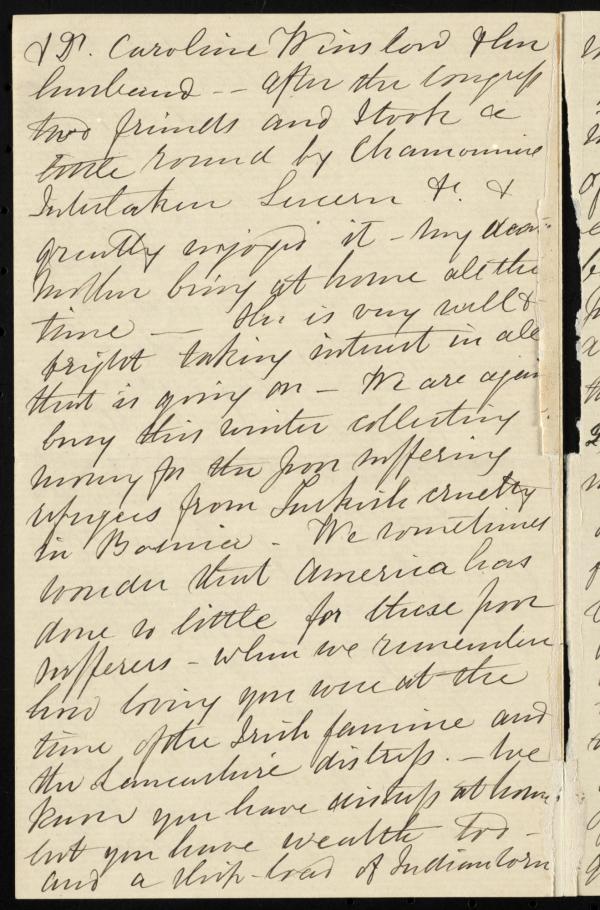 & Dr. Caroline Winslow & her
husband -- after the Congress
two friends and I took a
little round by Chamounix
Interlaken Lucern &c &
greatly enjoyed it - my dear
mother being at home all the
time — She is very well &
bright taking interest in all
that is going on - We are again
busy this winter collecting
money for the poor suffering
refugees from Turkish cruelty
in Bosnia - We sometimes
wonder that America has
done so little for these poor
sufferers - when we remember
how loving you were at the
time of the Irish famine and
the Lancashire distress. - We
know you have distress at home
but you have wealth too -
and a ship-load of Indian corn